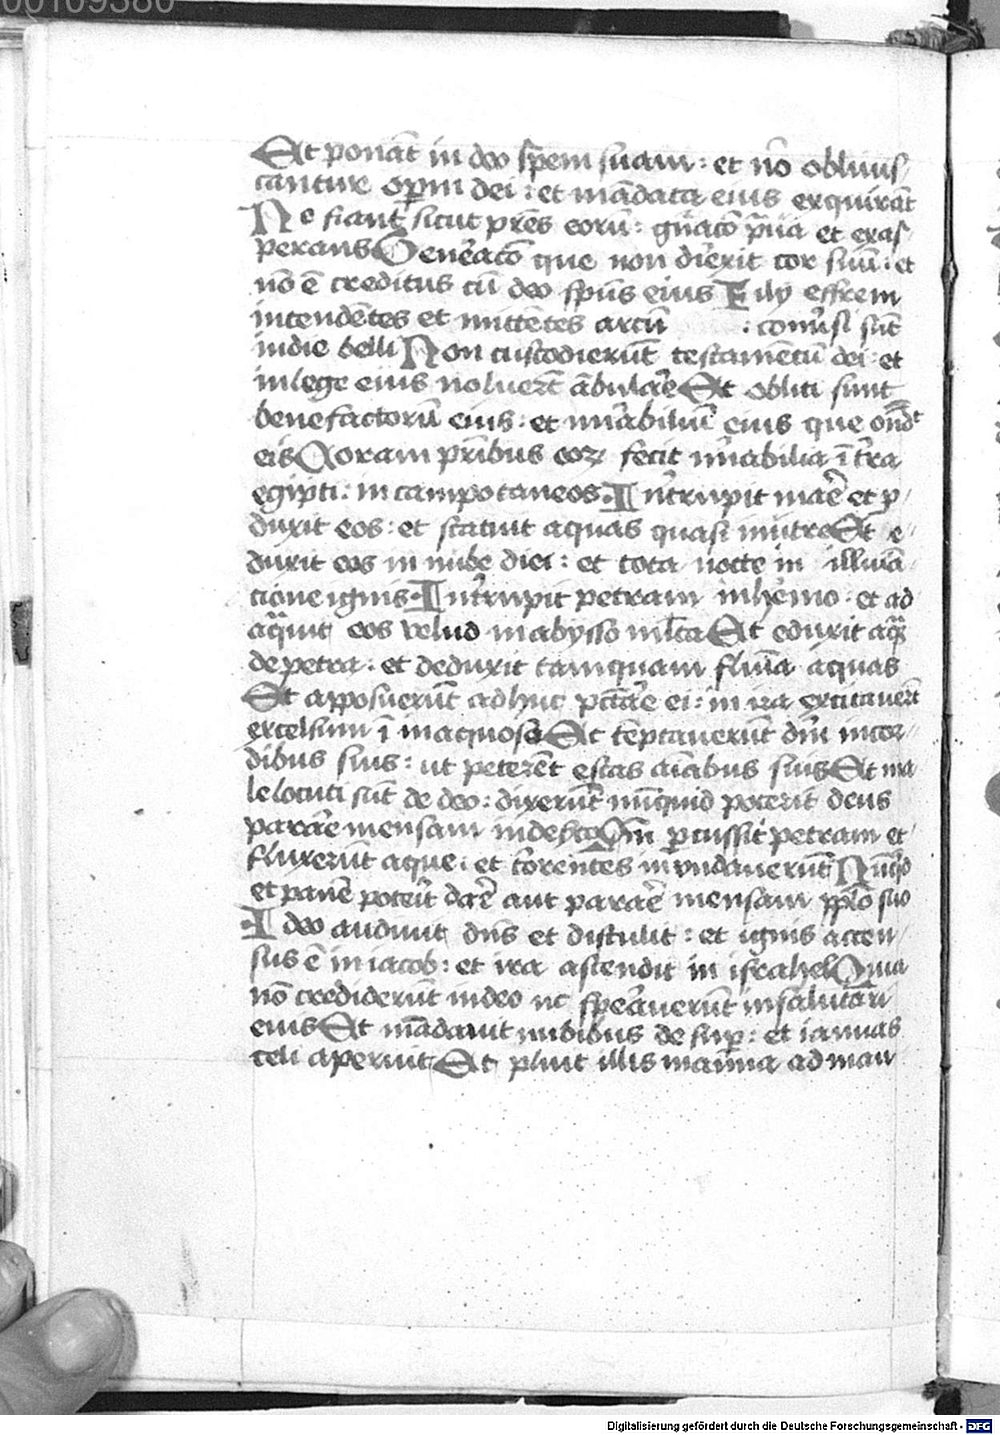 00109380
Et ponāt in deo spem suam : et nō obliuis/
cantur opm̄ dei : et mādata eius exquirāt
Ne fiant sicut pr̄es eorū : gn̄acō p̄ua et exas/
perans Gen̄eacō que non dir̄exit cor suū : et
nō ē creditus cū deo sp̄us eius Filij effrem
intendētes et mittētes arcū : conūsi sūt
in die belli Non custodierūt testamētū dei : et
in lege eius noluerūt ābular̄e Et obliti sunt
benefactorū eius : et mir̄abiliū eius que ond̄t
eis Coram pr̄ibus eoꝝ fecit mir̄abilia ī tr̄a
egipti : in campo taneos Intr̄upit mar̄e et p̄/
duxit eos : et statuit aquas quasi in utre Et e/
duxit eos in nube diei : et tota nocte in illuīa/
cione ignis Intr̄upit petram in her̄emo : et ad
aq̄uit eos velud in abysso ml̄ta Et eduxit aq̄ꝫ
de petra : et deduxit tamquam fluīa aquas
Et apposuerūt adhuc pc̄car̄e ei : in ira excitauer̄t
excelsum ī inaquoso Et tēptauerūt dm̄ in cor/
dibus suis : ut peterēt escas aīabus suis Et ma
le locuti sūt de deo : dixerūt nūquid poterit deus
parar̄e mensam in deserto Qm̄ p̄cussit petram et
fluxerūt aque : et tor̄entes inundauerūt Nūq̄d
et panē poterit dar̄e aut parar̄e mensam ppl̄o suo
Ideo audiuit dn̄s et distulit : et ignis accen/
sus ē in iacob : et ira ascendit in israhel Quia
nō crediderūt in deo nc̄ sper̄auerūt in salutari
eius Et mādauit nubibus de sup̄ : et ianuas
celi aperuit Et pluit illis manna ad man
Digitalisierung gefördert durch die Deutsche Forschungsgemeinschaft - DFG